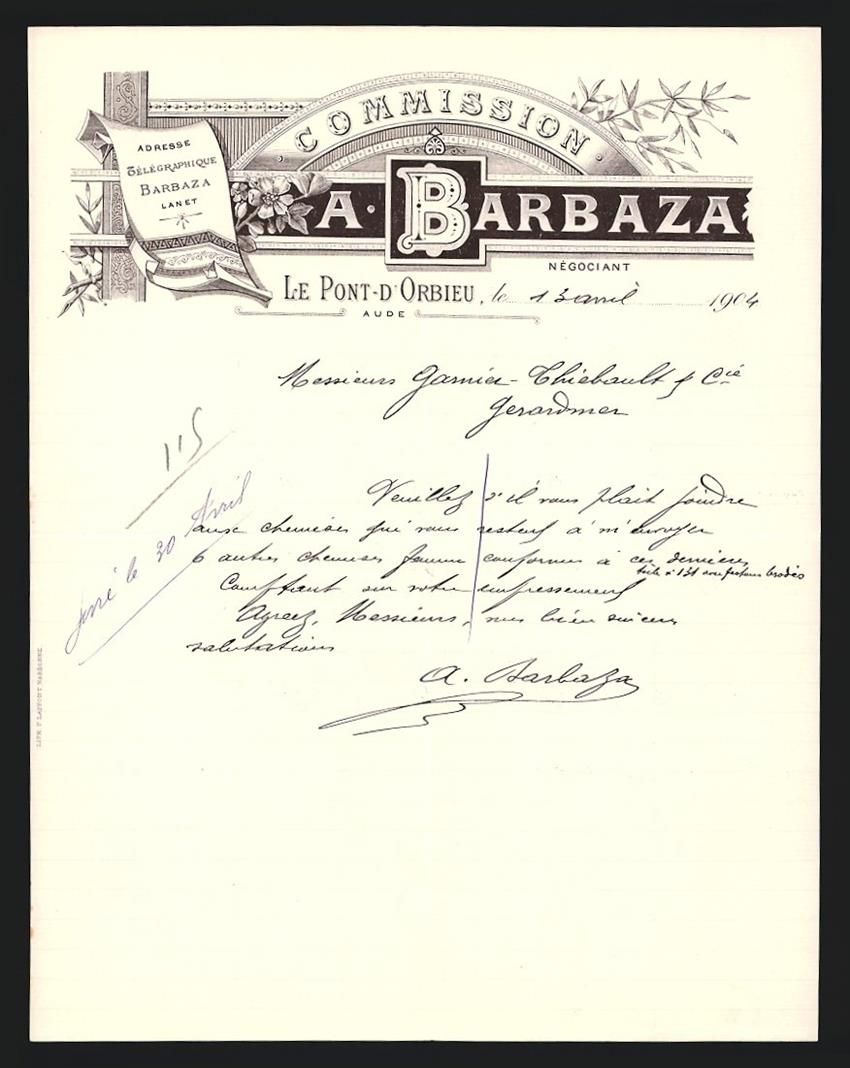 COMMISSION
ADRESSE
TÉLÉGRAPHIQUE
BARBAZA
LANET
A. BARBAZA
NÉGOCIANT
LE PONT-D'ORBIEU, le 13 avril 1904
AUDE
Messieurs Garnier-Thiebault & Cie
Gerardmer
115
Veuillez s'il vous plait joindre
aux chemises qui vous restent à m'envoyer
6 autres chemises femme conformes à ces dernières
toile à 131 brodés
Comptant sur votre empressement
Agreez, Messieurs, mes bien sincères
salutations
A. Barbaza
le 30 Avril
LITH F LAFFONT NARBONNE